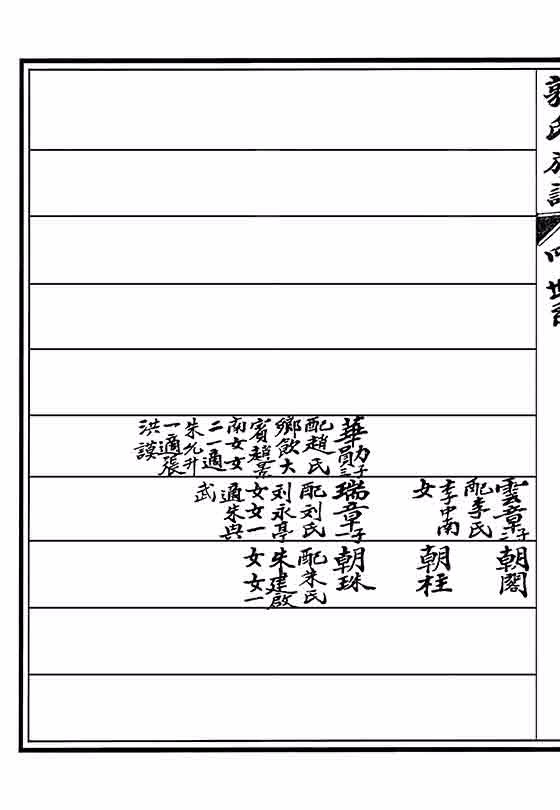 郭氏族譜
四世
華勛三子
配趙氏
鄉飲大
賓趙景
南女女
二一適
朱允升
一適張
洪謨
雲章二子
配李氏
李中南
女
瑞章一子
配刘氏
刘永亭
女女一
適朱
武
朝閣
朝柱
朝珠
配朱氏
朱建啟
女女一